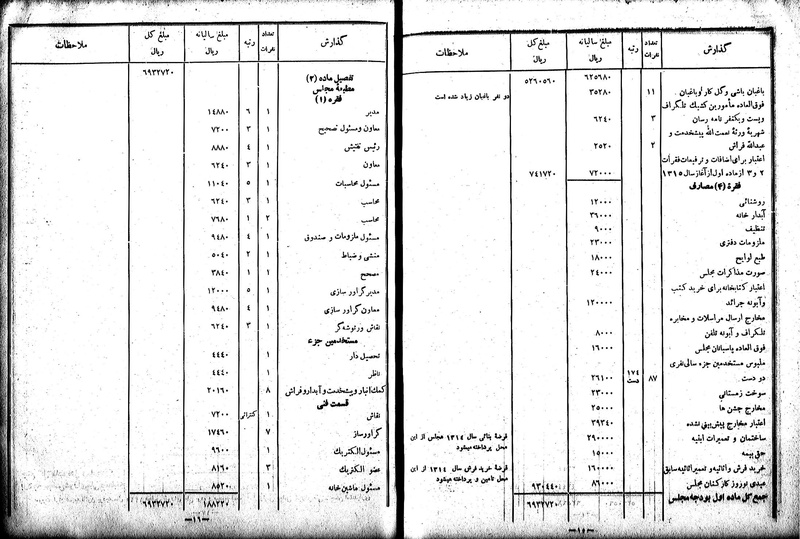 گذارش تعداد نفرات رتبه مبلغ سالیانه ریال مبلغ کل ریال ملاحظات
۶۲۵۶۸۰ ۵۲۶۰۵۶۰
باغبان باشی و گل کار و باغبان ۱۱ ۳۵۲۸۰ دو نفر باغبان زیاد شده است
فوق‌العاده مأمورین کشیک تلگراف
وپست ویکنفر نامه رسان ۳ ۶۲۴۰
شهریهٔ ورثهٔ نعمت‌الله پیشخدمت و
عبدالله فراش ۲ ۲۵۲۰
اعتبار برای اضافات و ترفیعات فقرات
۲ و ۳ از ماده اول از آغاز سال ۱۳۱۵ ۷۲۰۰۰ ۷۴۱۷۲۰
فقرهٔ (۴) مصارف
روشنائی ۱۲۰۰۰
آبدار خانه ۳۶۰۰۰
تنظیف ۹۰۰۰
ملزومات دفتری ۲۳۰۰۰
طبع لوایح ۱۸۰۰۰
صورت مذاکرات مجلس ۲۴۰۰۰
اعتبار کتابخانه برای خرید کتب
وآبونه جرائد ۱۲۰۰۰۰
مخارج ارسال مراسلات و مخابره
تلگراف و آبونه تلفن ۸۰۰۰
فوق العاده پاسبانان مجلس ۱۶۰۰۰
ملبوس مستخدمین جزء سالی نفری
دو دست ۸۷ ۱۷۴ دست ۲۶۱۰۰
سوخت زمستانی ۲۳۰۰۰
مخارج جشن ها ۲۵۰۰۰
اعتبار مخارج پیش‌بینی نشده ۳۹۳۴۰
ساختمان و تعمیرات ابنیه ۲۹۰۰۰۰ قرضهٔ بنائی سال ۱۳۱۴ مجلس از این محل پرداخته میشود
حق بیمه ۱۵۰۰۰
خرید فرش و اثاثیه و تعمیر اثاثیه سابق ۱۶۰۰۰۰ قرضهٔ خرید فرش سال ۱۳۱۴ از این محل تامین و پرداخته میشود
عیدی نوروز کارکنان مجلس ۸۶۰۰۰ ۹۳۰۴۴۰
جمع کل ماده اول بودجه مجلس ۶۹۳۲۷۲۰
—۱۵—
گذارش تعداد نفرات رتبه مبلغ سالیانه ریال مبلغ کل ریال ملاحظات
۶۹۳۲۷۲۰
تفصیل ماده (۲)
مطبعهٔ مجلس
فقره (۱)
مدیر ۱ ۶ ۱۴۸۸۰
معاون و مسئول تصحیح ۱ ۳ ۷۲۰۰
رئیس تفتیش ۱ ۴ ۸۸۸۰
معاون ۱ ۳ ۶۲۴۰
مسئول محاسبات ۱ ۵ ۱۱۰۴۰
محاسب ۱ ۳ ۶۲۴۰
محاسب ۱ ۲ ۷۶۸۰
مسئول ملزومات و صندوق ۱ ۴ ۹۴۸۰
منشی و ضباط ۱ ۲ ۵۰۴۰
مصحح ۱ ۱ ۳۸۴۰
مدیر گراور سازی ۱ ۵ ۱۲۰۰۰
معاون گراور سازی ۱ ۴ ۹۴۸۰
نقاش ورتوشه‌گر ۱ ۳ ۶۲۴۰
مستخدمین جزء
تحصیل دار ۱ ۴۴۴۰
ناظر ۱ ۴۴۴۰
کمک انبار و پیشخدمت و آبدار و فراش ۸ ۲۰۱۶۰
قسمت فنی
نقاش ۱ کنتراتی ۷۲۰۰
گراورساز ۷ ۱۷۴۶۰
مسئول الکتریک ۱ ۹۶۰۰
عضو الکتریک ۳ ۸۱۶۰
مسئول ماشین خانه ۱ ۸۵۲۰
۱۸۸۲۲۰ ۶۹۳۲۷۲۰
—۱۶—